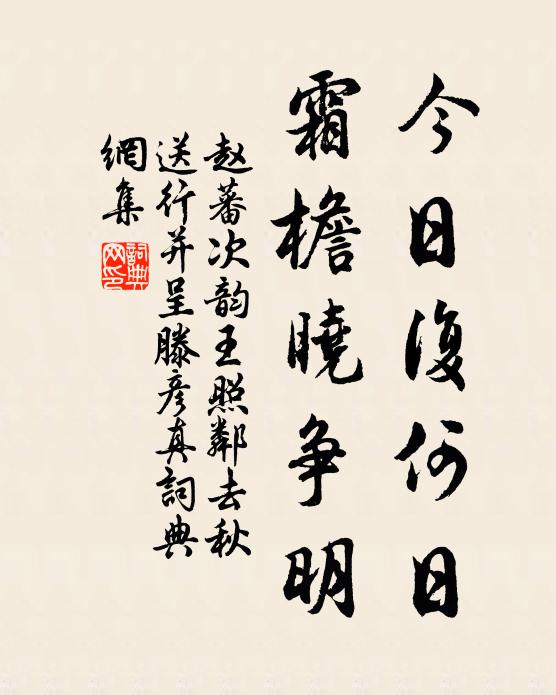 今日復何日
霜檐曉争明
赵蕃次韵王照鄰去秋
送行并呈滕彦真詞典
網集
詞典網印